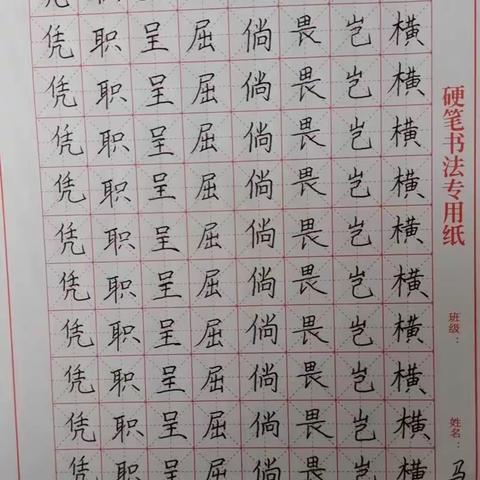 凭职呈屈倘畏岂横
凭职呈屈倘畏岂横
凭职呈屈倘畏岂横
凭职呈屈倘畏岂横
凭职呈屈倘畏岂横
凭职呈屈倘畏岂横
凭职呈屈倘畏岂横
凭职呈屈倘畏岂横
凭职呈屈倘畏岂横
凭职呈屈倘畏岂横
硬笔书法专用纸
班级：
姓名：马